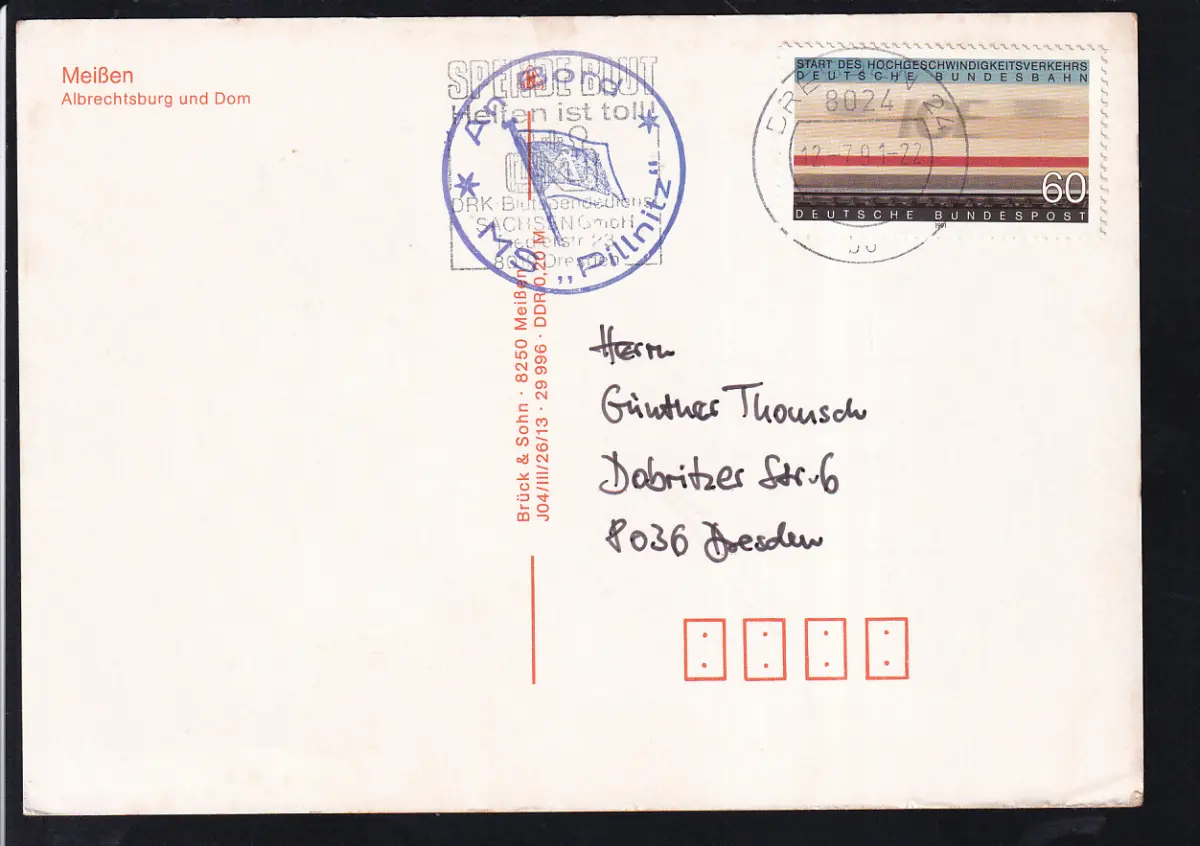 Meißen
Albrechtsburg und Dom
SPENDE BLUT
Helfen ist toll!
DRK-Blutspendedienst
SACHSEN GmbH
23
Dresden
* An Bord *
MS „Pillnitz"
START DES HOCHGESCHWINDIGKEITSVERKEHRS
DEUTSCHE BUNDESBAHN
60
DEUTSCHE BUNDESPOST
1991
DRESDEN 24
8024
12.-7.91-22
Brück & Sohn · 8250 Meißen
J04/III/26/13 · 29 996 · DDR 0,20 M
Herrn
Günther Thomsch
Dobritzer Str. 6
8036 Dresden